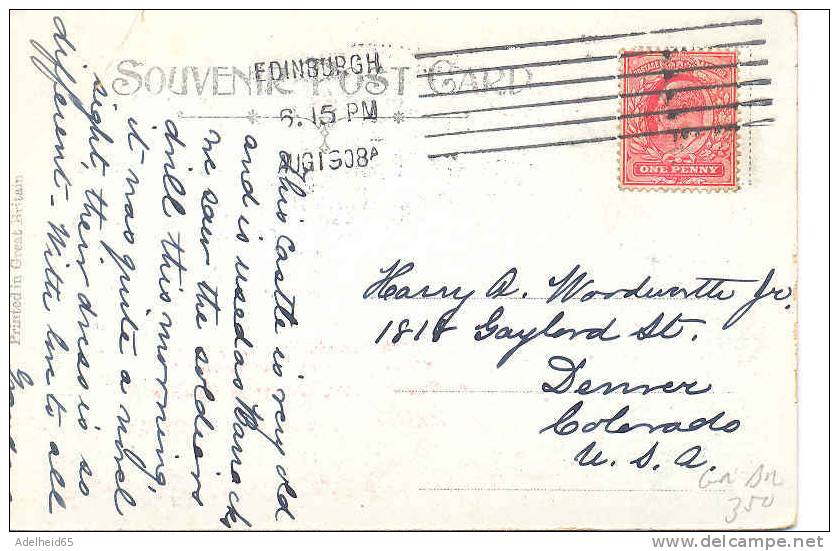 SOUVENIR POST CARD
EDINBURGH
6.15 PM
AUG 1 08 A
ONE PENNY
This Castle is very old
and is used as Barracks
we saw the soldiers
drill this morning,
it was quite a novel
sight, their dress is so
different - With love to all
Harry A. Woodworth Jr.
1818 Gaylord St.
Denver
Colorado
U. S. A.
350
Printed in Great Britain
Adelheid65
www.delcampe.net